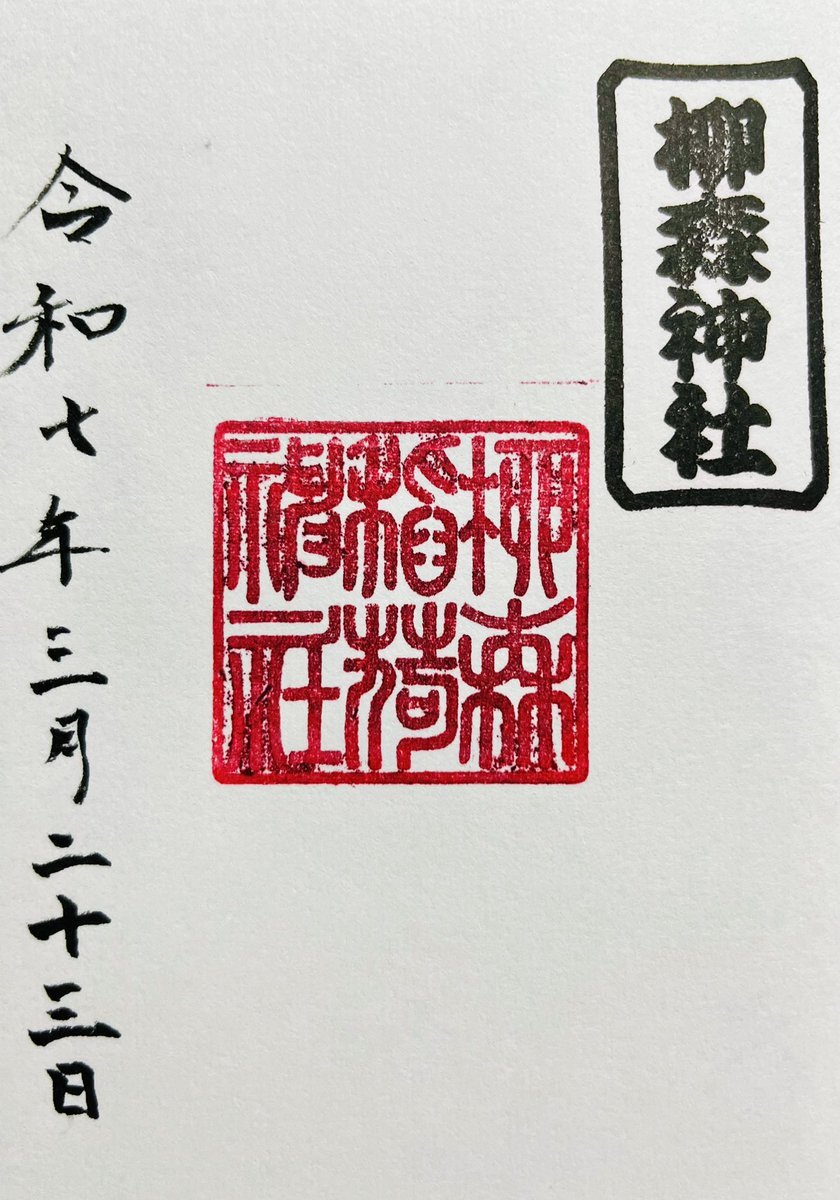 柳森神社
柳森
稲荷
神社
令和七年三月二十三日